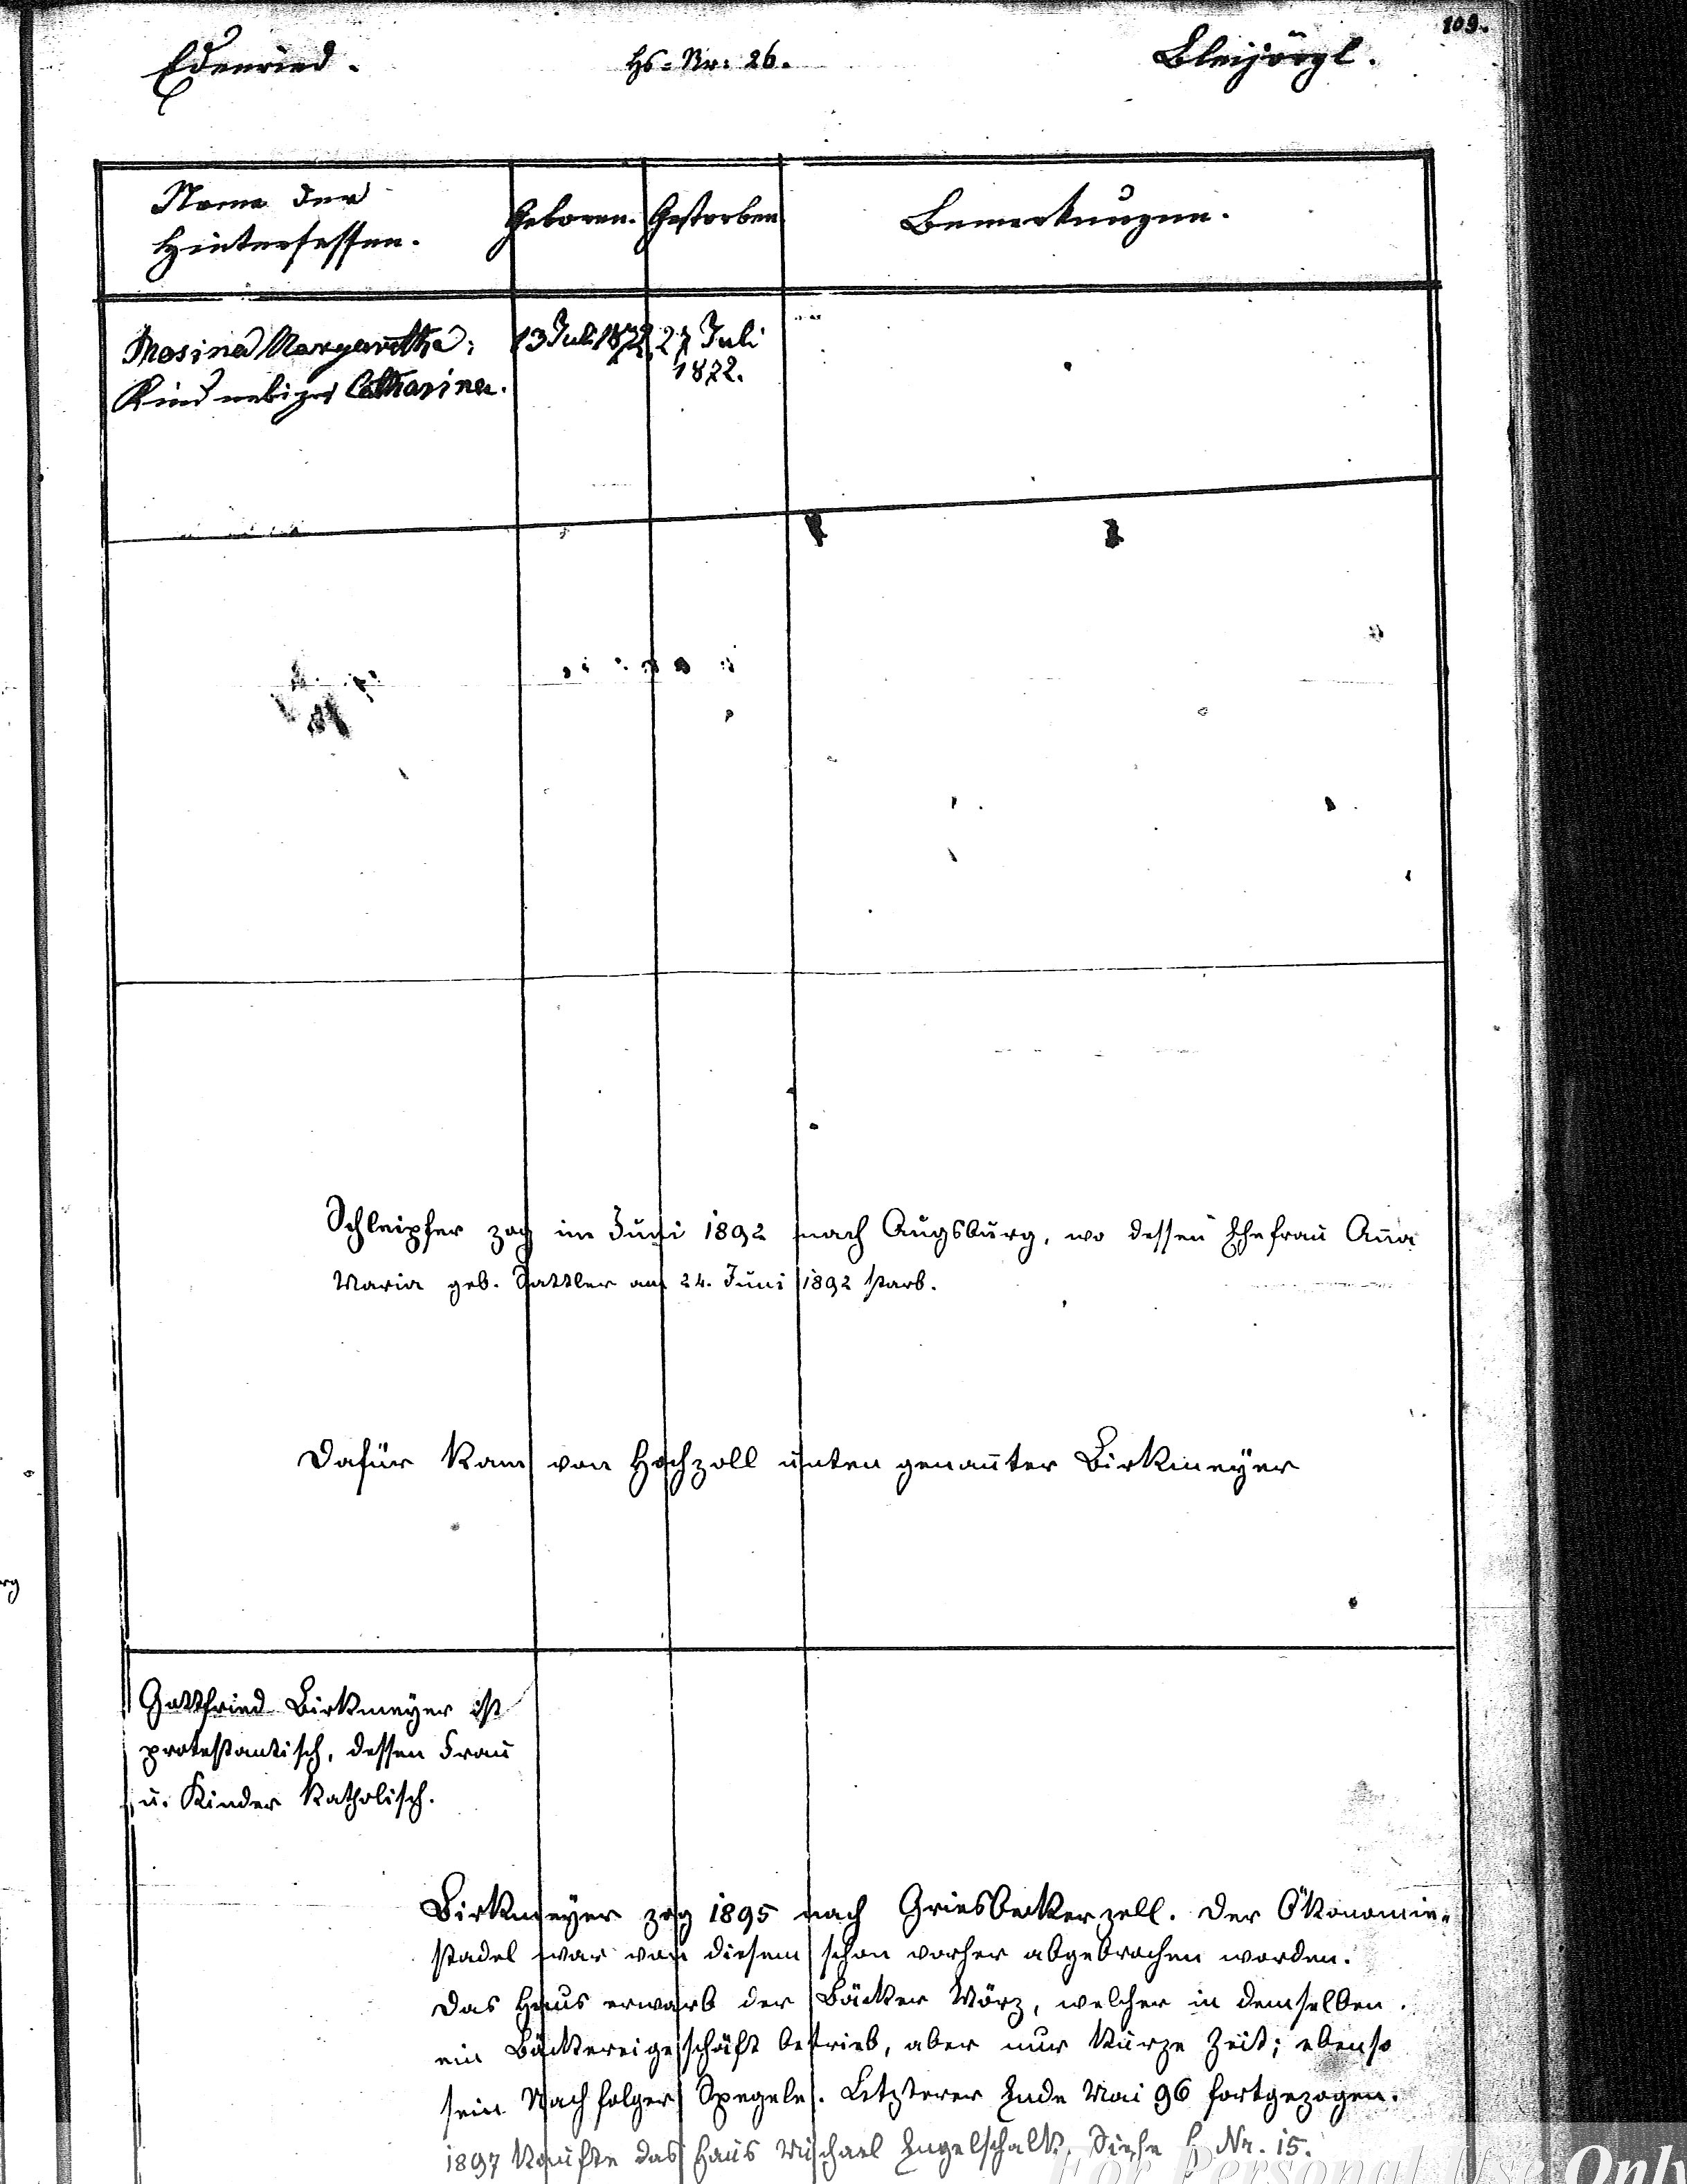 109.
Edenried. Hs-Nr. 26. Bleijörgl.
Name der Geboren. Gestorben Bemerkungen.
Hintersessen.
Rosina Margaretha, 13 Juli 1872 27 Juli
1872.
Kind nebiger Catharina.
Schleipfer zog im Juni 1892 nach Augsburg, wo dessen Ehefrau Aña
Maria geb. Sattler am 24. Juni 1892 starb.
Dafür kam von Hochzoll unten genañter Birkmeyer
rg
Gottfried Birkmeyer ist
protestantisch, dessen Frau
u. Kinder katholisch.
Birkmeyer zog 1895 nach Griesbeckerzell. Der Ökonomie-
stadel war von diesem schon vorher abgebrochen worden.
Das Haus erwarb der Bäcker Wörz, welcher in demselben
ein Bäckereigeschäft betrieb, aber nur kurze Zeit; ebenso
sein Nachfolger Spegele. Letzterer Ende Mai 96 fortgezogen.
1897 kaufte das Haus Michael Engelschalk. Siehe H Nr. 15.
For Personal Use Only